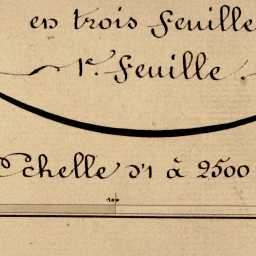 en trois feuille
1e. feuille.
Echelle d'1 à 2500
100